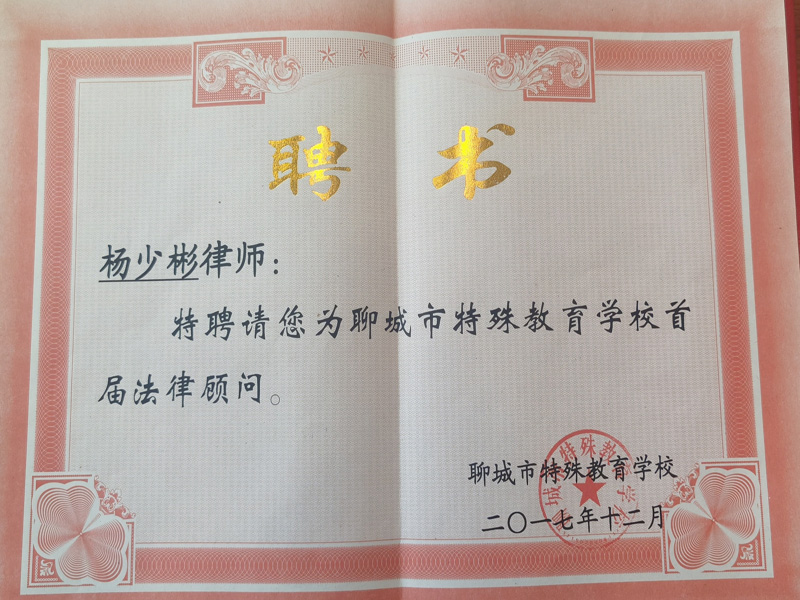 聘书
杨少彬律师：
特聘请您为聊城市特殊教育学校首
届法律顾问。
聊城市特殊教育学校
二〇一七年十二月